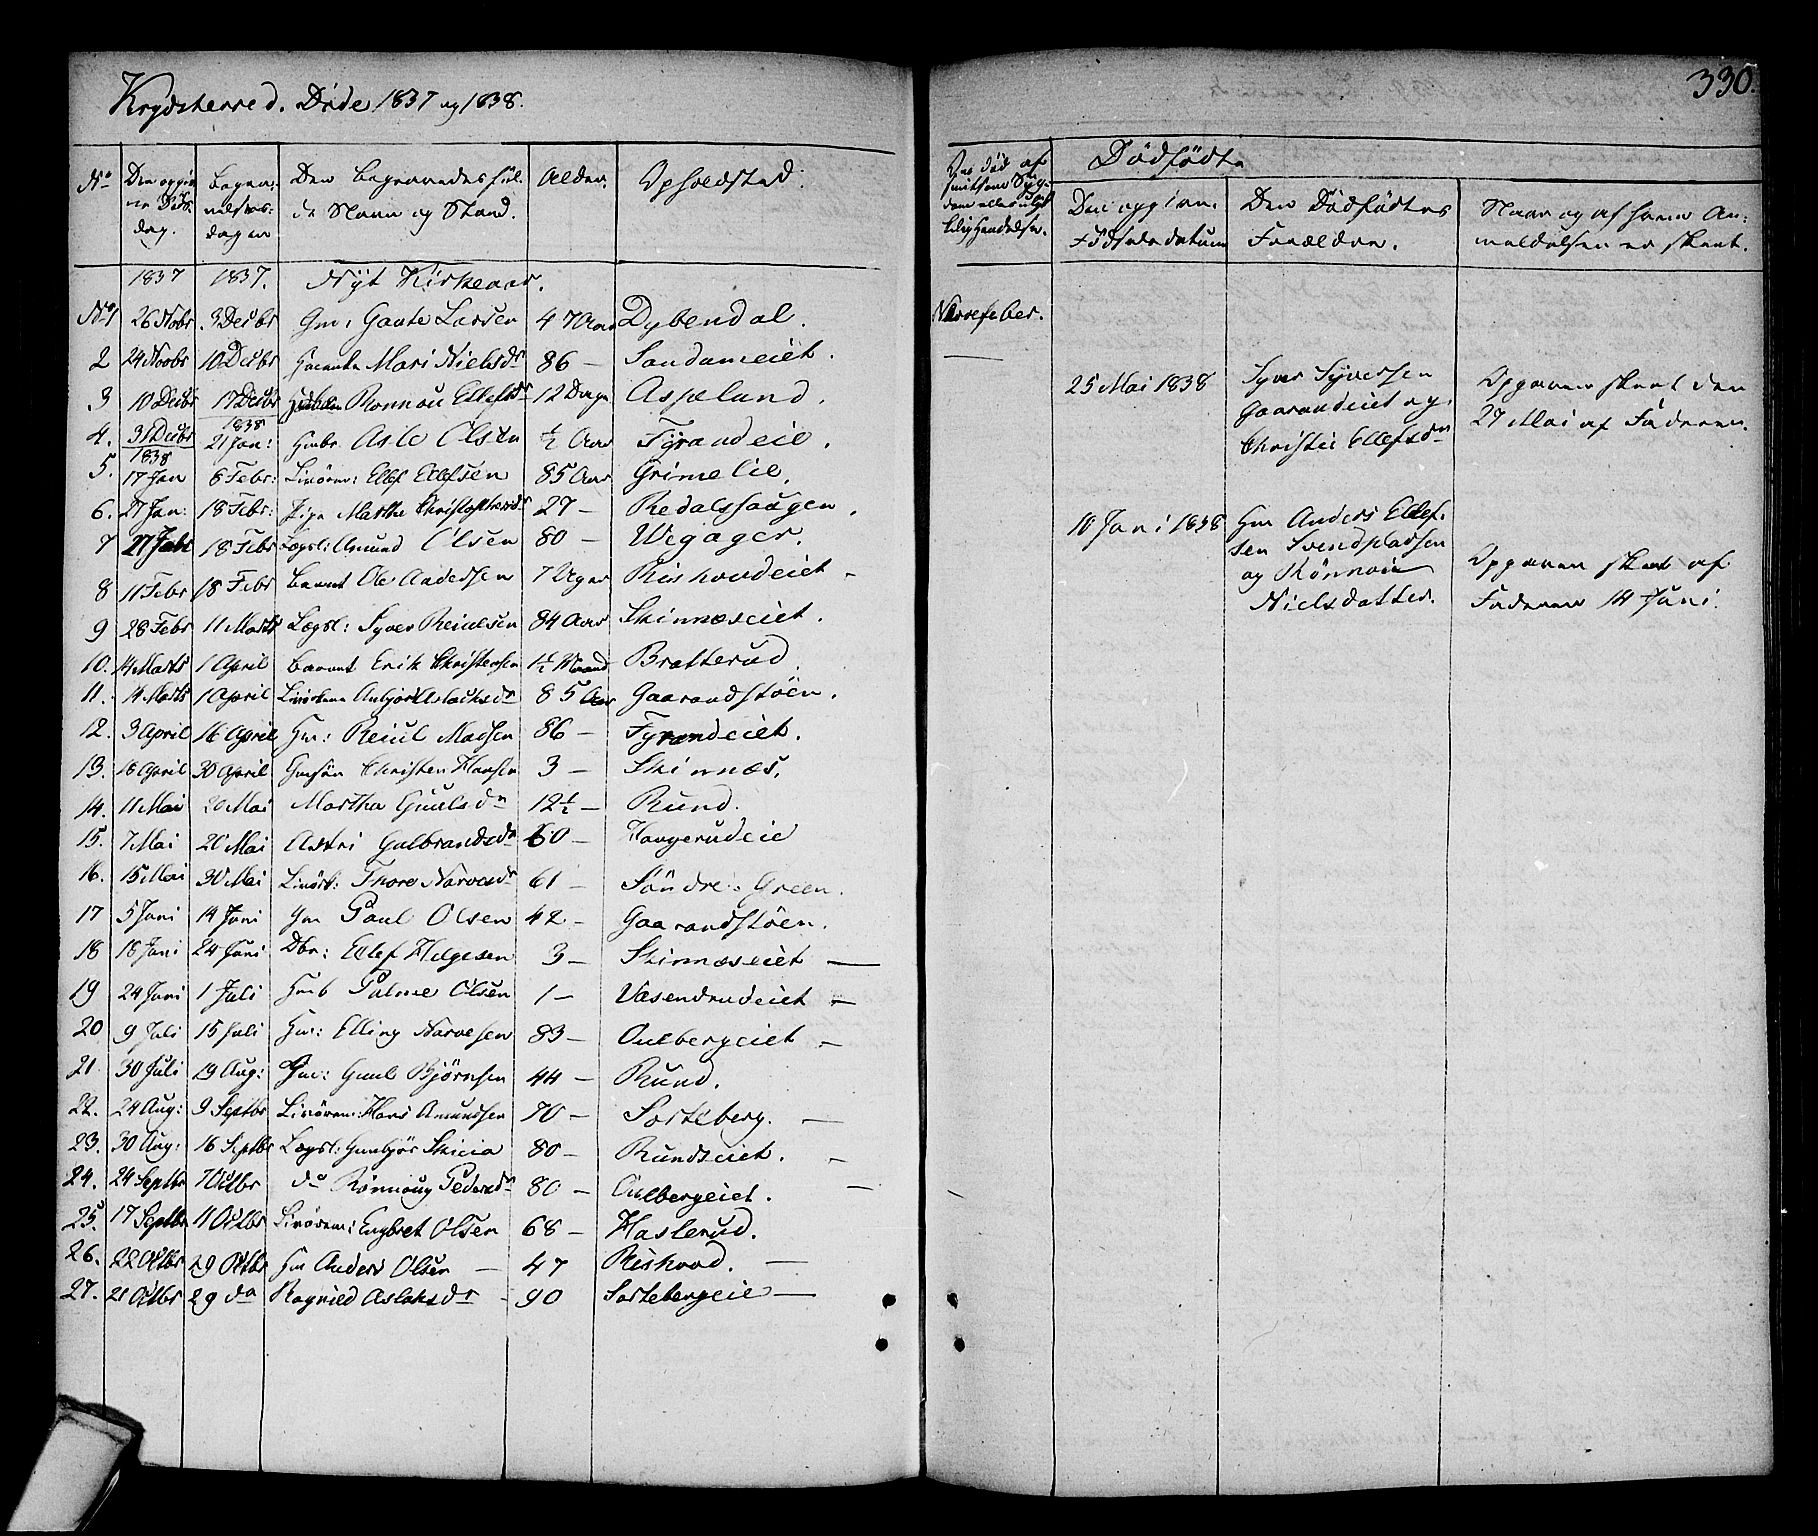 Krydsherred. Døde 1837 og 1838.
330.
No Den opgivne Døds dag. Begravelses- dagen Den Begravedes fulde Navn og Stand. Alder. Opholdsted.
1837 1837. Nyt Kirkeaar.
No 1 26 Novbr 3 Decbr Gm: Gaute Larsen 47 Aar Dybendal.
2 24 Novbr 10 Decbr Mari Nielsdr 86 — Sandumeiet.
3 10 Decbr 17 Decbr Ronnou Ellefsdr 12 Dage Aspelund.
4. 31 Decbr 1838 21 Jan: Gmbr Asle Olsen ½ Aar Fyrandeie.
5. 1838 17 Jan 6 Febr: Livørem: Ellef Ellefsen 85 Aar Grimelie.
6. 27 Jan: 18 Febr: Pige Marthe Christophersdr 27 — Redalshaugen.
7 18 Febr Lægsl: Amund Olsen 80 — Wegager.
8 11 Febr 18 Febr Barnet Ole Andersen 7 Uger Rishovdeiet —
9 28 Febr 11 Marts Lægsl: Syver Reiulsen 84 Aar Skinnæseiet.
10. 14 Marts 1 April Barnet Erik Christensen 1½ Maand Bratterud.
11. 14 Marts 1 April Anbjør Aslacksdr 85 Aar Gaarandstøen.
12. 3 April 16 April Hm: Reiul Madsen 86 — Fyrandeiet.
13. 16 April 30 April Gmsøn Christen Hansen 3 — Skinnæs.
14. 11 Mai 20 Mai Martha Guulsdr 12½ — Rund.
15. 7 Mai 20 Mai Astri Gulbrandsdr 60 — Haugerudeie
16. 15 Mai 30 Mai Livørk: Thore Narvesdr 61 — Søndre Green.
17 5 Juni 14 Juni Gm Paul Olsen 42 — Gaarandstøen.
18 18 Juni 24 Juni Dbr: Ellef Helgesen 3 — Skinnæseiet —
19 24 Juni 1 Juli Hmb Palme Olsen 1 — Væsendrudeiet —
20 9 Juli 15 Juli Hm: Elling Narvesen 83 — Oulbergeiet —
21. 30 Juli 19 Aug: Gm: Guul Bjørnsen 44 — Rund.
22. 24 Aug: 9 Septbr Livørem: Hans Amundsen 70 — Sorteberg. —
23. 30 Aug: 16 Septbr Lægsl: Gunbjør Skicia 80 — Rundseiet. —
24. 24 Septbr 7 Octbr do Rønnoug Pedersdr 80 — Oulbergeiet. —
25. 17 Septbr 11 Octbr Livørem: Engbret Olsen 68 — Haslerud.
26. 22 Octbr 29 Octbr Hm Anders Olsen — 47 Rishovd. —
27. 21 Octbr 29 do Ragnild Aslaksdr — 90 Sortebergeie —
Dødfødte
Død af smitsom Syg- dom eller ulyk- kelig Hændelse.
Den opgivne Fødselsdatum
Den Dødfødtes Forældre.
Naar og af hvem An- meldelsen er skeet.
Nervefeber.
25 Mai 1838
Syver Syversen
Gaarandeiet og
Christie Ellefsdr
Opgaven skeet den
27 Mai af Faderen.
10 Juni 1838
Hm Anders Ellef-
sen Svendpladsen
og Rønnoie
Nielsdatter.
Opgaven skeet af
Faderen 14 Juni.